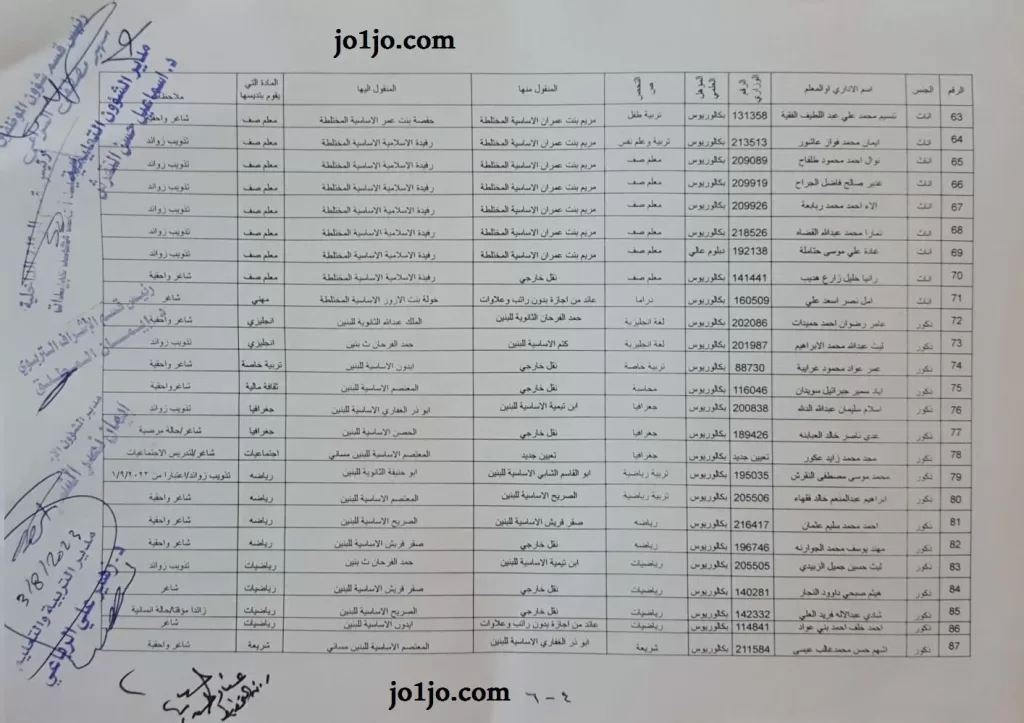 jo1jo.com
الرقم الجنس اسم الاداري او المعلم الرقم الوزاري المؤهل العلمي التخصص المنقول منها المنقول اليها المادة التي يقوم بتدريسها
63 اناث تسنيم محمد علي عبد اللطيف الفقية 131358 بكالوريوس تربية طفل مريم بنت عمران الاساسية المختلطة حفصة بنت عمر الاساسية المختلطة معلم صف شاغر واحقية
64 اناث ايمان محمد فواز عاشور 213513 بكالوريوس تربية وعلم نفس مريم بنت عمران الاساسية المختلطة رفيدة الاسلامية الاساسية المختلطة معلم صف تذويب زوائد
65 اناث نوال احمد محمود طلفاح 209089 بكالوريوس معلم صف مريم بنت عمران الاساسية المختلطة رفيدة الاسلامية الاساسية المختلطة معلم صف تذويب زوائد
66 اناث غدير صالح فاضل الجراح 209919 بكالوريوس معلم صف مريم بنت عمران الاساسية المختلطة رفيدة الاسلامية الاساسية المختلطة معلم صف تذويب زوائد
67 اناث الاء احمد محمد ربابعة 209926 بكالوريوس معلم صف مريم بنت عمران الاساسية المختلطة رفيدة الاسلامية الاساسية المختلطة معلم صف تذويب زوائد
68 اناث تمارا محمد عبدالله القضاه 218526 بكالوريوس معلم صف مريم بنت عمران الاساسية المختلطة رفيدة الاسلامية الاساسية المختلطة معلم صف تذويب زوائد
69 اناث غادة علي موسى حتاملة 192138 دبلوم عالي معلم صف مريم بنت عمران الاساسية المختلطة رفيدة الاسلامية الاساسية المختلطة معلم صف تذويب زوائد
70 اناث رانيا خليل زارع هديب 141441 بكالوريوس معلم صف نقل خارجي رفيدة الاسلامية الاساسية المختلطة معلم صف شاغر واحقية
71 اناث امل نصر اسعد علي 160509 بكالوريوس دراما عائد من اجازة بدون راتب وعلاوات خولة بنت الازور الاساسية المختلطة مهني شاغر
72 ذكور عامر رضوان احمد حميدات 202086 بكالوريوس لغة انجليزية حمد الفرحان الثانوية للبنين الملك عبدالله الثانوية للبنين انجليزي شاغر واحقية
73 ذكور ليث عبدالله محمد الابراهيم 201987 بكالوريوس لغة انجليزية كتم الاساسية للبنين حمد الفرحان ث بنين انجليزي تذويب زوائد
74 ذكور عمر عواد محمود غرايبة 88730 بكالوريوس تربية خاصة نقل خارجي ايدون الاساسية للبنين تربية خاصة شاغر واحقية
75 ذكور اياد سمير جبرائيل سويدان 116046 بكالوريوس محاسبة نقل خارجي المعتصم الاساسية للبنين ثقافة مالية شاغر واحقية
76 ذكور اسلام سليمان عبدالله الدلة 200838 بكالوريوس جغرافيا ابن تيمية الاساسية للبنين ابو ذر الغفاري الاساسية للبنين جغرافيا تذويب زوائد
77 ذكور عدي ناصر خالد العبابنه 189426 بكالوريوس جغرافيا نقل خارجي الحصن الاساسية للبنين جغرافيا شاغر/حالة مرضية
78 ذكور مجد محمد زايد عكور تعيين جديد بكالوريوس جغرافيا تعيين جديد المعتصم الاساسية للبنين مسائي اجتماعيات شاغر/لتدريس الاجتماعيات
79 ذكور محمد موسى مصطفى النقرش 195035 بكالوريوس تربية رياضية ابو القاسم الشابي الاساسية للبنين ابو حنيفة الثانوية للبنين رياضه تذويب زوائد/اعتبارا من ١/٩/٢٠٢٣
80 ذكور ابراهيم عبدالمنعم خالد فقهاء 205506 بكالوريوس تربية رياضية الصريح الاساسية للبنين المعتصم الاساسية للبنين رياضه شاغر واحقية
81 ذكور احمد محمد سليم عثمان 216417 بكالوريوس رياضه صقر قريش الاساسية للبنين الصريح الاساسية للبنين رياضه شاغر واحقية
82 ذكور مهند يوسف محمد الجوارنه 196746 بكالوريوس رياضه نقل خارجي صقر قريش الاساسية للبنين رياضه شاغر واحقية
83 ذكور ليث حسين جميل الزبيدي 205505 بكالوريوس رياضيات ابن تيمية الاساسية للبنين حمد الفرحان ث بنين رياضيات تذويب زوائد
84 ذكور هيثم صبحي داوود النجار 140281 بكالوريوس رياضيات نقل خارجي صقر قريش الاساسية للبنين رياضيات شاغر
85 ذكور شادي عبدالاله فريد العلي 142332 بكالوريوس رياضيات نقل خارجي الصريح الاساسية للبنين رياضيات زائدا مؤقتا/حالة انسانية
86 ذكور احمد خلف احمد بني عواد 114841 بكالوريوس رياضيات عائد من اجازة بدون راتب وعلاوات ايدون الاساسية للبنين رياضيات شاغر
87 ذكور اشهم حسن محمدغالب عيسى 211584 بكالوريوس شريعة ابو ذر الغفاري الاساسية للبنين المعتصم الاساسية للبنين مسائي شريعة شاغر واحقية
مدير التربية والتعليم
3/8/2023
jo1jo.com
٦-٤